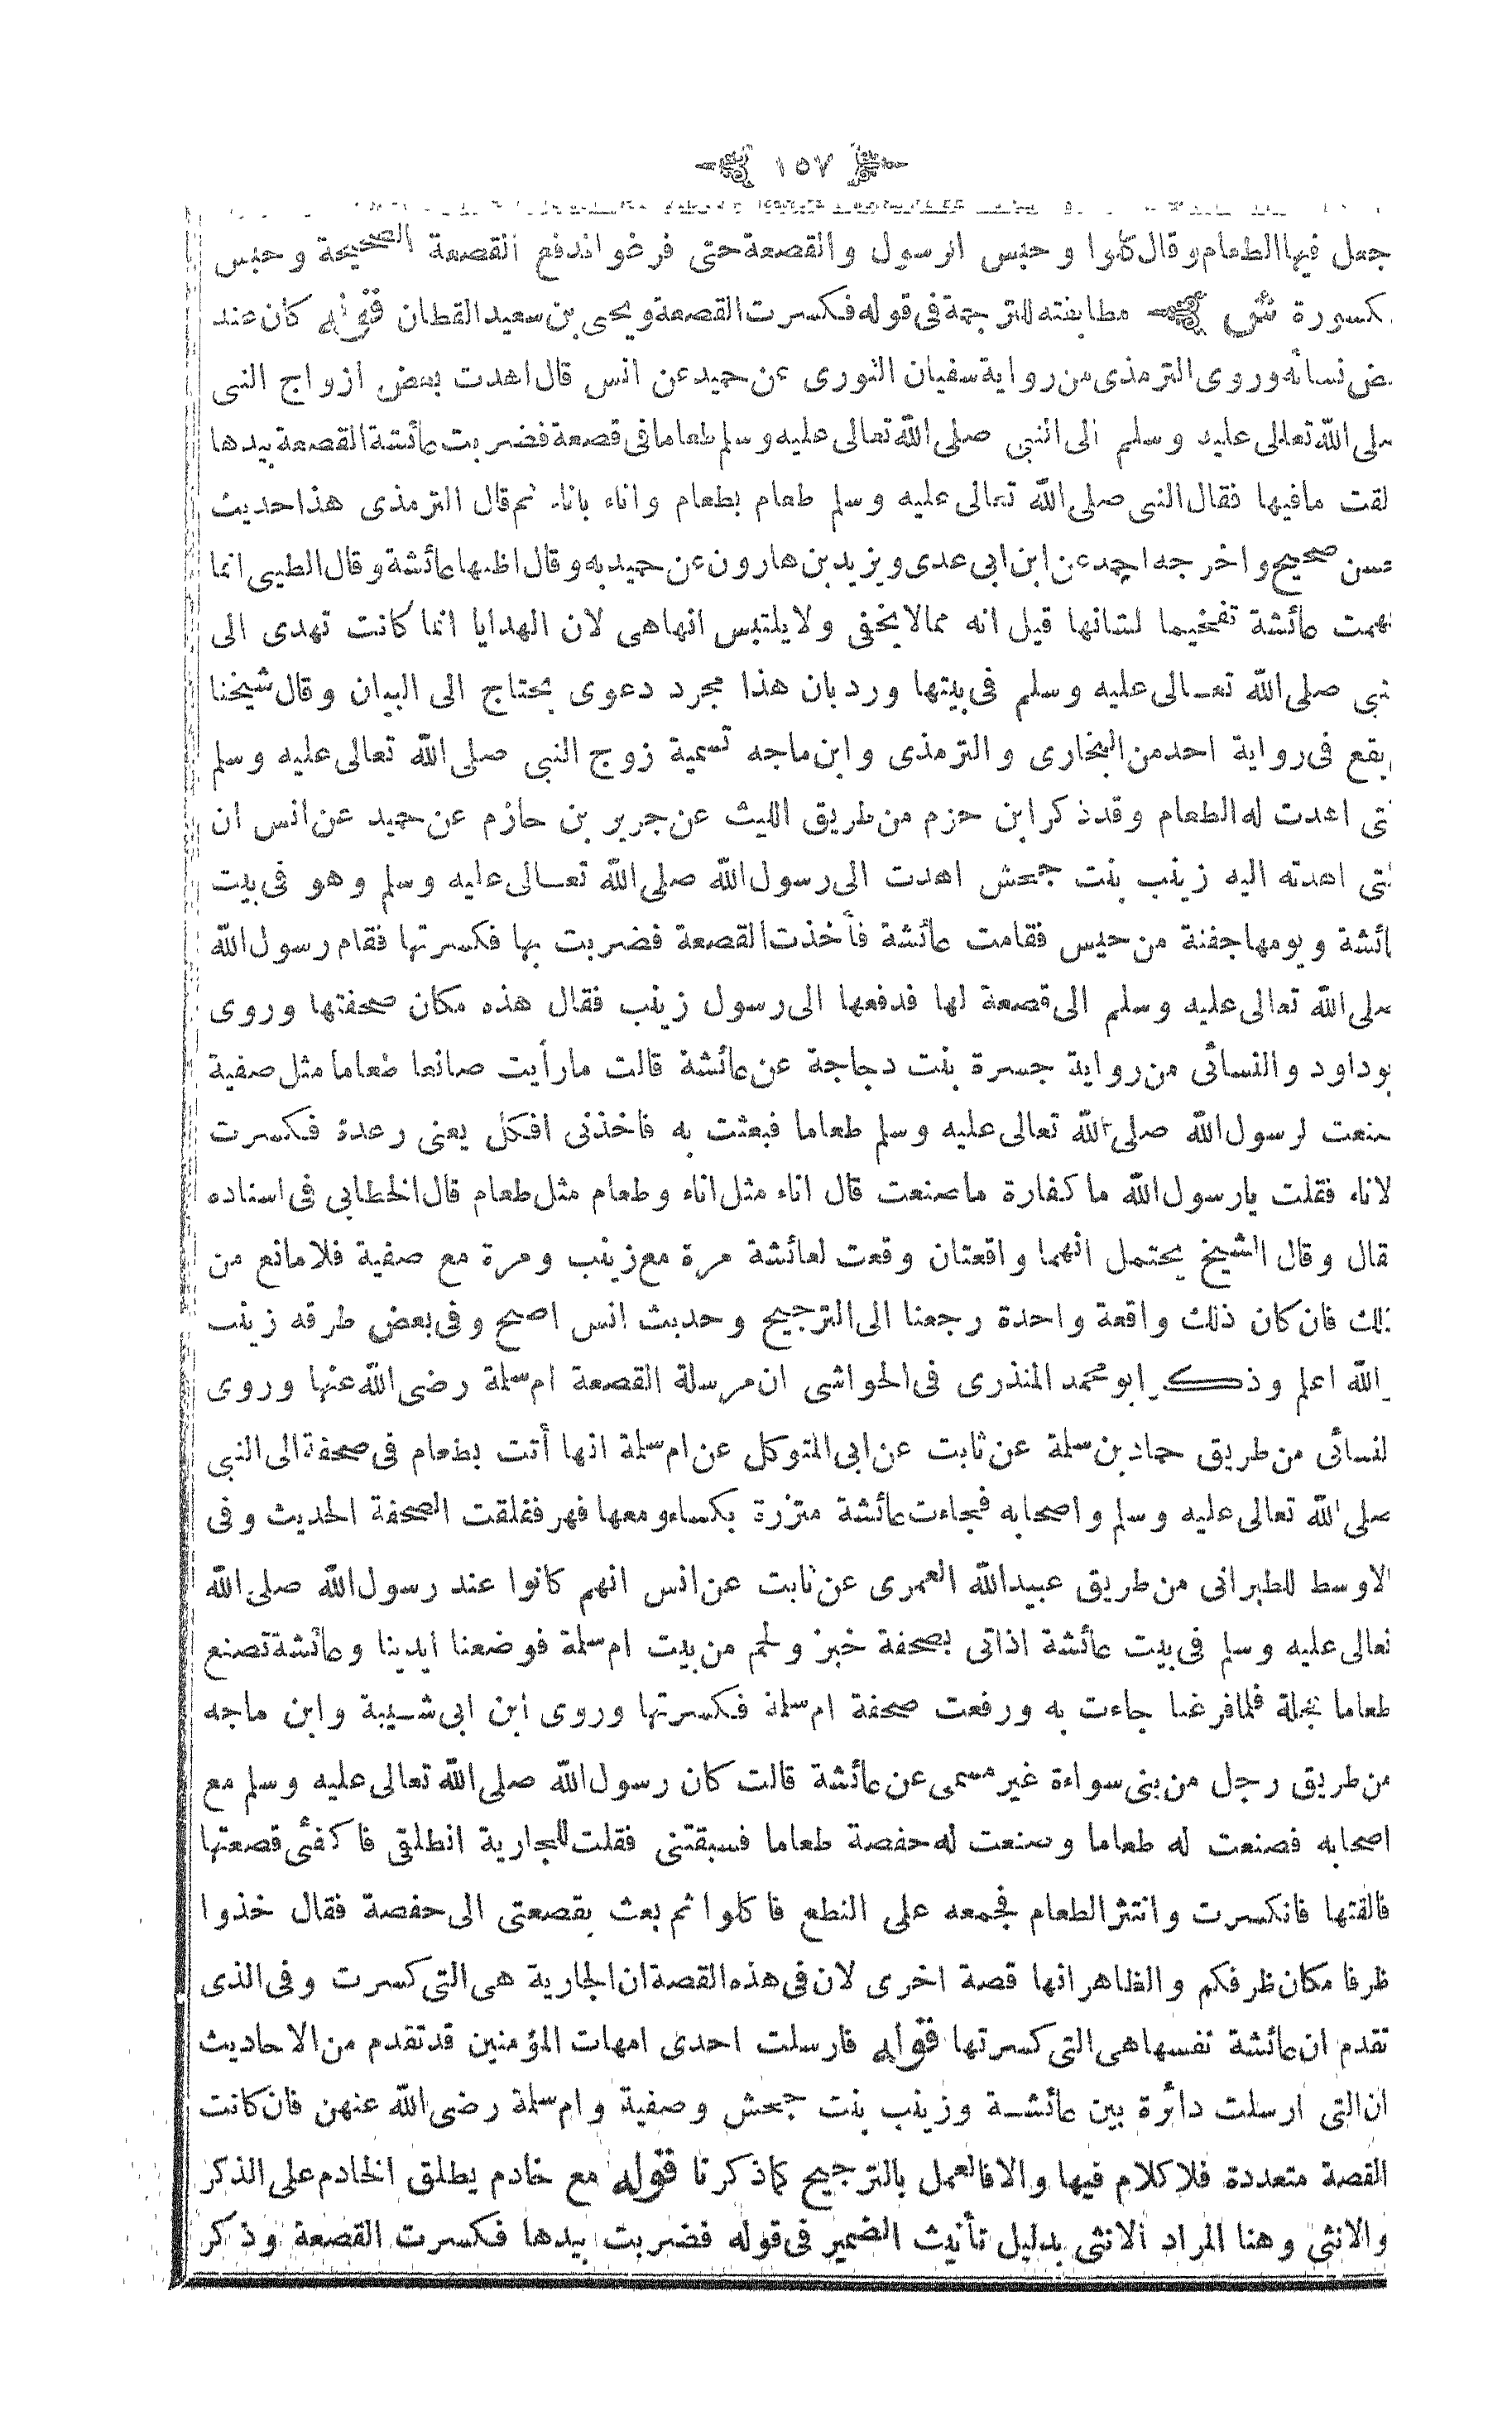 ١٥٧
جعل فيها الطعام وقال كلوا وحبس الرسول والقصعة حتى فرغوا فدفع القصعة الصحيحة وحبس
كسورة ش مطابقته للترجمة فى قوله فكسرت القصعة ويحيى بن سعيد القطان قوله كان عند
ض نسائه وروى الترمذى من رواية سفيان الثورى عن حميد عن انس قال اهدت بعض ازواج النبى
صلى الله تعالى عليه وسلم الى النبى صلى الله تعالى عليه وسلم طعاما فى قصعة فضربت عائشة القصعة بيدها
لقت مافيها فقال النبى صلى الله تعالى عليه وسلم طعام بطعام واناء باناء ثم قال الترمذى هذا حديث
حسن صحيح واخرجه احمد عن ابن ابى عدى ويزيد بن هارون عن حميد به وقال اظنها عائشة وقال الطيبى انما
بهمت عائشة تفخيما لشانها قيل انه ممالا يخفى ولا يلتبس انها هى لان الهدايا انما كانت تهدى الى
لنبى صلى الله تعالى عليه وسلم فى بيتها ورد بان هذا مجرد دعوى يحتاج الى البيان وقال شيخنا
يقع فى رواية احد من البخارى والترمذى وابن ماجه تسمية زوج النبى صلى الله تعالى عليه وسلم
لتى اهدت له الطعام وقد ذكر ابن حزم من طريق الليث عن جرير بن حازم عن حميد عن انس ان
لتى اهدته اليه زينب بنت جحش اهدت الى رسول الله صلى الله تعالى عليه وسلم وهو فى بيت
ائشة ويومها جفنة من حيس فقامت عائشة فأخذت القصعة فضربت بها فكسرتها فقام رسول الله
صلى الله تعالى عليه وسلم الى قصعة لها فدفعها الى رسول زينب فقال هذه مكان صحفتها وروى
بو داود والنسائى من رواية جسرة بنت دجاجة عن عائشة قالت مارأيت صانعا طعاما مثل صفية
صنعت لرسول الله صلى الله تعالى عليه وسلم طعاما فبعثت به فاخذنى افكل يعنى رعدة فكسرت
لاناء فقلت يارسول الله ما كفارة ماصنعت قال اناء مثل اناء وطعام مثل طعام قال الخطابى فى اسناده
قال وقال الشيخ يحتمل انهما واقعتان وقعت لعائشة مرة مع زينب ومرة مع صفية فلا مانع من
ذلك فان كان ذلك واقعة واحدة رجعنا الى الترجيح وحديث انس اصح وفى بعض طرقه زينب
والله اعلم وذكر ابو محمد المنذرى فى الحواشى ان مرسلة القصعة ام سلمة رضى الله عنها وروى
لنسائى من طريق حماد بن سلمة عن ثابت عن ابى المتوكل عن ام سلمة انها أتت بطعام فى صحفة الى النبى
صلى الله تعالى عليه وسلم واصحابه فجاءت عائشة متزرة بكساء ومعها فهر ففلقت الصحفة الحديث وفى
الاوسط للطبرانى من طريق عبيد الله العمرى عن ثابت عن انس انهم كانوا عند رسول الله صلى الله
تعالى عليه وسلم فى بيت عائشة اذاتى بصحفة خبز ولحم من بيت ام سلمة فوضعنا ايدينا وعائشة تصنع
طعاما عجلة فلما فرغنا جاءت به ورفعت صحفة ام سلمة فكسرتها وروى ابن ابى شيبة وابن ماجه
من طريق رجل من بنى سواءة غير مسمى عن عائشة قالت كان رسول الله صلى الله تعالى عليه وسلم مع
اصحابه فصنعت له طعاما وصنعت له حفصة طعاما فسبقتنى فقلت للجارية انطلقى فاكفئى قصعتها
فالقتها فانكسرت وانتثر الطعام فجمعه على النطع فاكلوا ثم بعث بقصعتى الى حفصة فقال خذوا
ظرفا مكان ظرفكم والظاهر انها قصة اخرى لان فى هذه القصة ان الجارية هى التى كسرت وفى الذى
تقدم ان عائشة نفسها هى التى كسرتها قوله فارسلت احدى امهات المؤمنين قد تقدم من الاحاديث
ان التى ارسلت دائرة بين عائشة وزينب بنت جحش وصفية وام سلمة رضى الله عنهن فان كانت
القصة متعددة فلا كلام فيها والا فالعمل بالترجيح كما ذكرنا قوله مع خادم يطلق الخادم على الذكر
والانثى وهنا المراد الانثى بدليل تأنيث الضمير فى قوله فضربت بيدها فكسرت القصعة وذكر